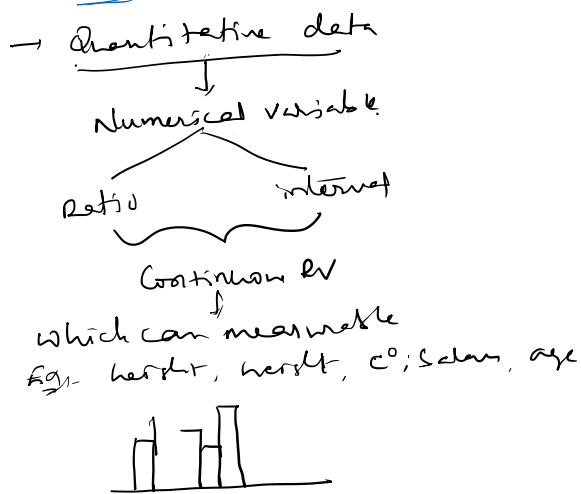 → Quantitative data
Numerical variable
Ratio interval
Continuous RV
which can measurable
Eg:- height, weight, c°, Salary, age